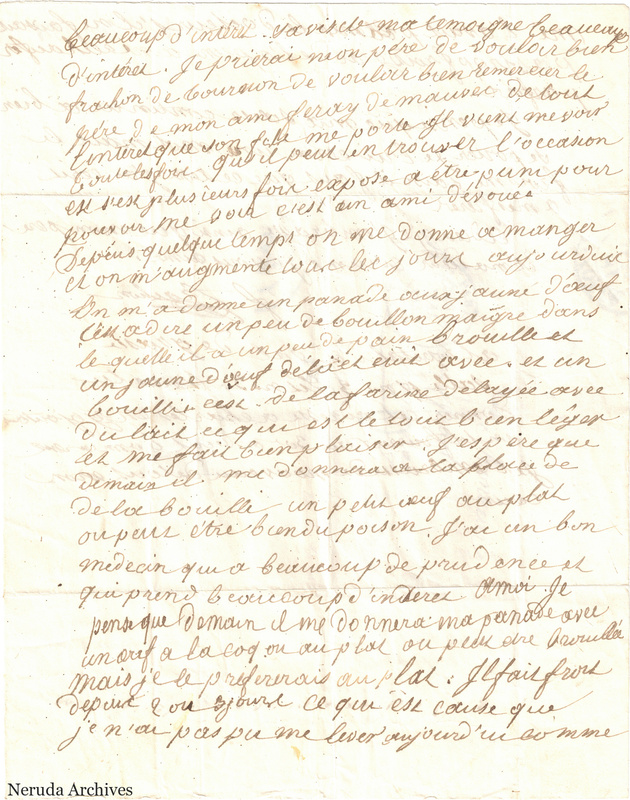 beaucoup d'intéret. Sa visite ma temoigne beaucoup
d'intéret. Je prierai mon père de vouloir bien
frachon de bournon de vouloir bien remercier le
père de mon ami feray de mauvec de tout
l'intéret que son fils me porte Il vient me voir
toutes les fois qu'il peut en trouver l'occasion
est s'est plusieurs fois exposé a être puni pour
pouvoir me voir c'est un ami dévoué.
Depuis quelque temps on me donne a manger
et on m'augmente tous les jours aujourduit
On m'a donné un panade aux jaune d'œuf
C'est a dire un peu de bouillon maigre dans
le quelle il a un peu de pain brouille et
un jaune d'œuf delié et cuit avec. et un
bouillit c'est de la farine delayée avec
du lait ce qui est le tout bien léger
et me fait bien plaisir J'espère que
demain il me donnera a la place de
de la bouille un petit œuf au plat
ou peut être bien du poison. J'ai un bon
medecin qui a beaucoup de prudance et
qui prend beaucoup d'interet a moi. Je
pense que Demain il me donnera ma panade avec
un œuf a la coq ou au plat ou peut etre brouillé
mais je le prefererais au plat. Il fait froit
depuit 2 ou 3 jours ce qui est cause que
je n'ai pas pu me lever aujourd'ui comme
Neruda Archives